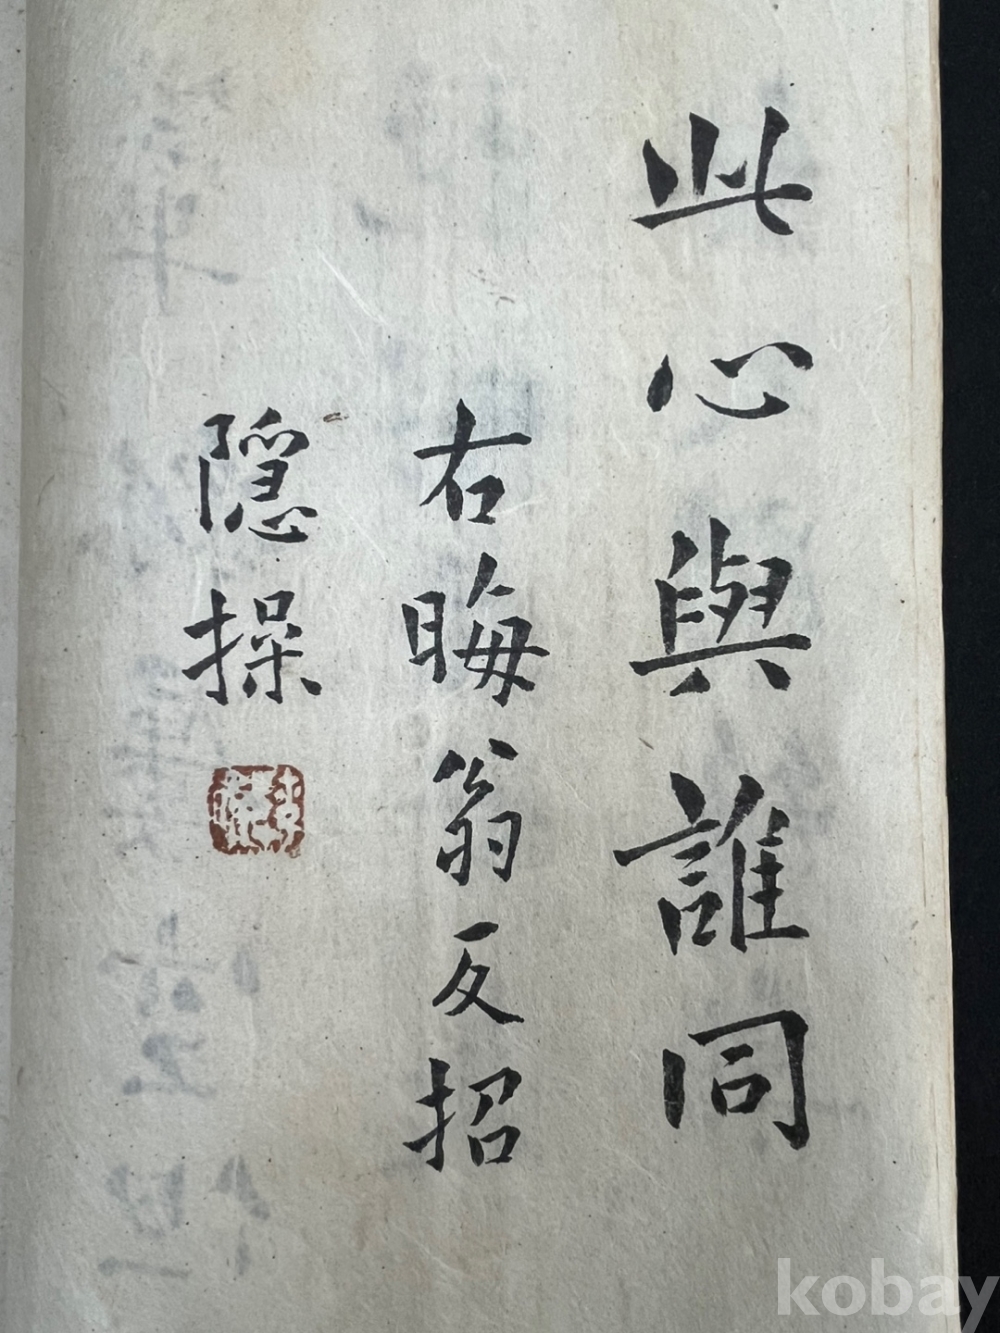 此心與誰同
右晦翁反招
隱操
kobay